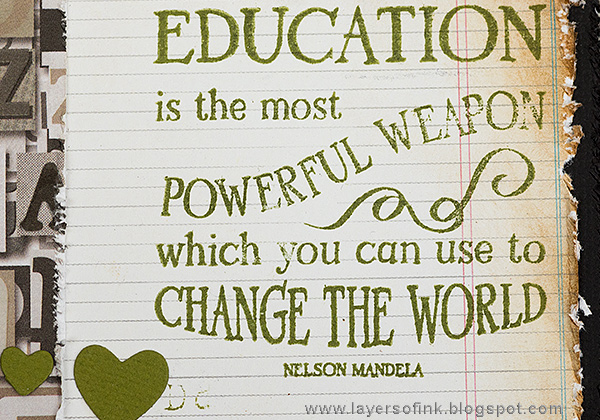 EDUCATION
is the most
POWERFUL WEAPON
which you can use to
CHANGE THE WORLD
NELSON MANDELA
www.layersofink.blogspot.com